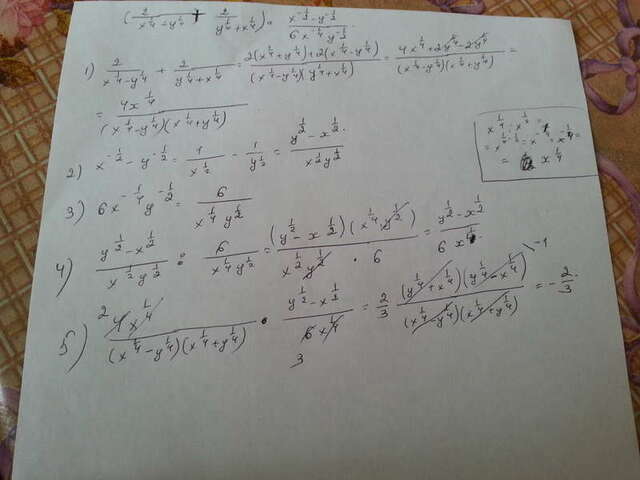 (2/(x^(1/4)-y^(1/4)) + 2/(y^(1/4)+x^(1/4))) · (x^(-1/2)-y^(-1/2))/(6x^(-1/4)y^(-1/2)).
1) 2/(x^(1/4)-y^(1/4)) + 2/(y^(1/4)+x^(1/4)) = (2(x^(1/4)+y^(1/4))+2(x^(1/4)-y^(1/4)))/((x^(1/4)-y^(1/4))(y^(1/4)+x^(1/4))) = (4x^(1/4)+2y^(1/4)-2y^(1/4))/((x^(1/4)-y^(1/4))(x^(1/4)+y^(1/4))) =
= 4x^(1/4)/((x^(1/4)-y^(1/4))(x^(1/4)+y^(1/4)))
2) x^(-1/2)-y^(-1/2) = 1/x^(1/2) - 1/y^(1/2) = (y^(1/2)-x^(1/2))/(x^(1/2)y^(1/2))
3) 6x^(-1/4)y^(-1/2) = 6/(x^(1/4)y^(1/2))
4) (y^(1/2)-x^(1/2))/(x^(1/2)y^(1/2)) : 6/(x^(1/4)y^(1/2)) = ((y^(1/2)-x^(1/2))(x^(1/4)y^(1/2)))/(x^(1/2)y^(1/2) · 6) = (y^(1/2)-x^(1/2))/(6x^(1/4)).
5) 2 4x^(1/4)/((x^(1/4)-y^(1/4))(x^(1/4)+y^(1/4))) · (y^(1/2)-x^(1/2))/(6x^(1/4)) 3 = 2/3 ((y^(1/4)+x^(1/4))(y^(1/4)-x^(1/4)))/((x^(1/4)-y^(1/4))(x^(1/4)+y^(1/4))) -1 = -2/3.
= x^(1/4)